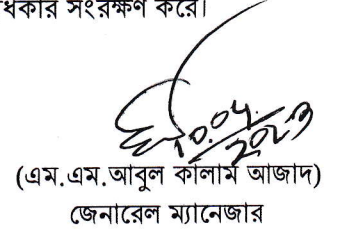 ধিকার সংরক্ষণ করে।
10.04.2023
(এম.এম.আবুল কালাম আজাদ)
জেনারেল ম্যানেজার